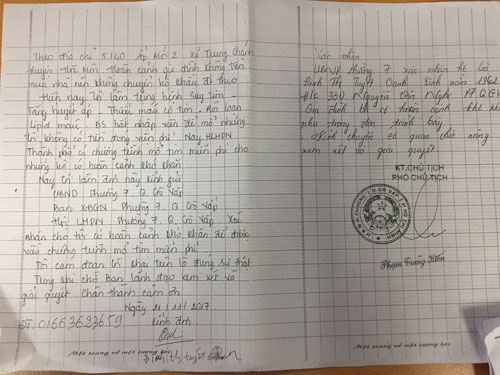 Theo địa chỉ 5140 Ấp Mới 2 xã Trung Chánh
huyện Hóc Môn. Hoàn cảnh gia đình không tên
mua nhà nên không chuyển hộ khẩu đi theo
Hiện nay tôi lâm trọng bệnh Suy tim -
Tăng huyết áp - Thiếu máu cơ tim - Rối loạn
Lipid máu BS bắt nhập viện để mổ nhưng
tôi không có tiền đóng viện phí. Nay HLHPN
Thành phố có chương trình mổ tim miễn phí cho
những hộ có hoàn cảnh khó khăn
Nay tôi làm đơn này kính gửi:
UBND Phường 7. Q. Gò Vấp
Ban XĐGN. Phường 7. Q. Gò Vấp
Hội LHPN Phường 7. Q. Gò Vấp Xác
nhận cho tôi có hoàn cảnh khó khăn để được
vào chương trình mổ tim miễn phí
Tôi cam đoan lời khai trên là đúng sự thật
Trong khi chờ Ban lãnh đạo xem xét và
giải quyết. Chân thành cảm ơn
Ngày 21/11/2017
ĐT: 01663623659 Kính đơn
Đinh thị tuyết Oanh
Một tương lai
Xác nhận
UBND phường 7 xác nhận hộ bà
Đinh Thị Tuyết Oanh sinh năm 1962
Đ/c 33D Nguyễn Văn Nghi P7. Q.GV
Gia đình bà có hoàn cảnh khó khăn
như trong đơn trình bày
Kính chuyển cơ quan chức năng
xem xét và giải quyết.
KT.CHỦ TỊCH
PHÓ CHỦ TỊCH
Phạm Trung Kiên